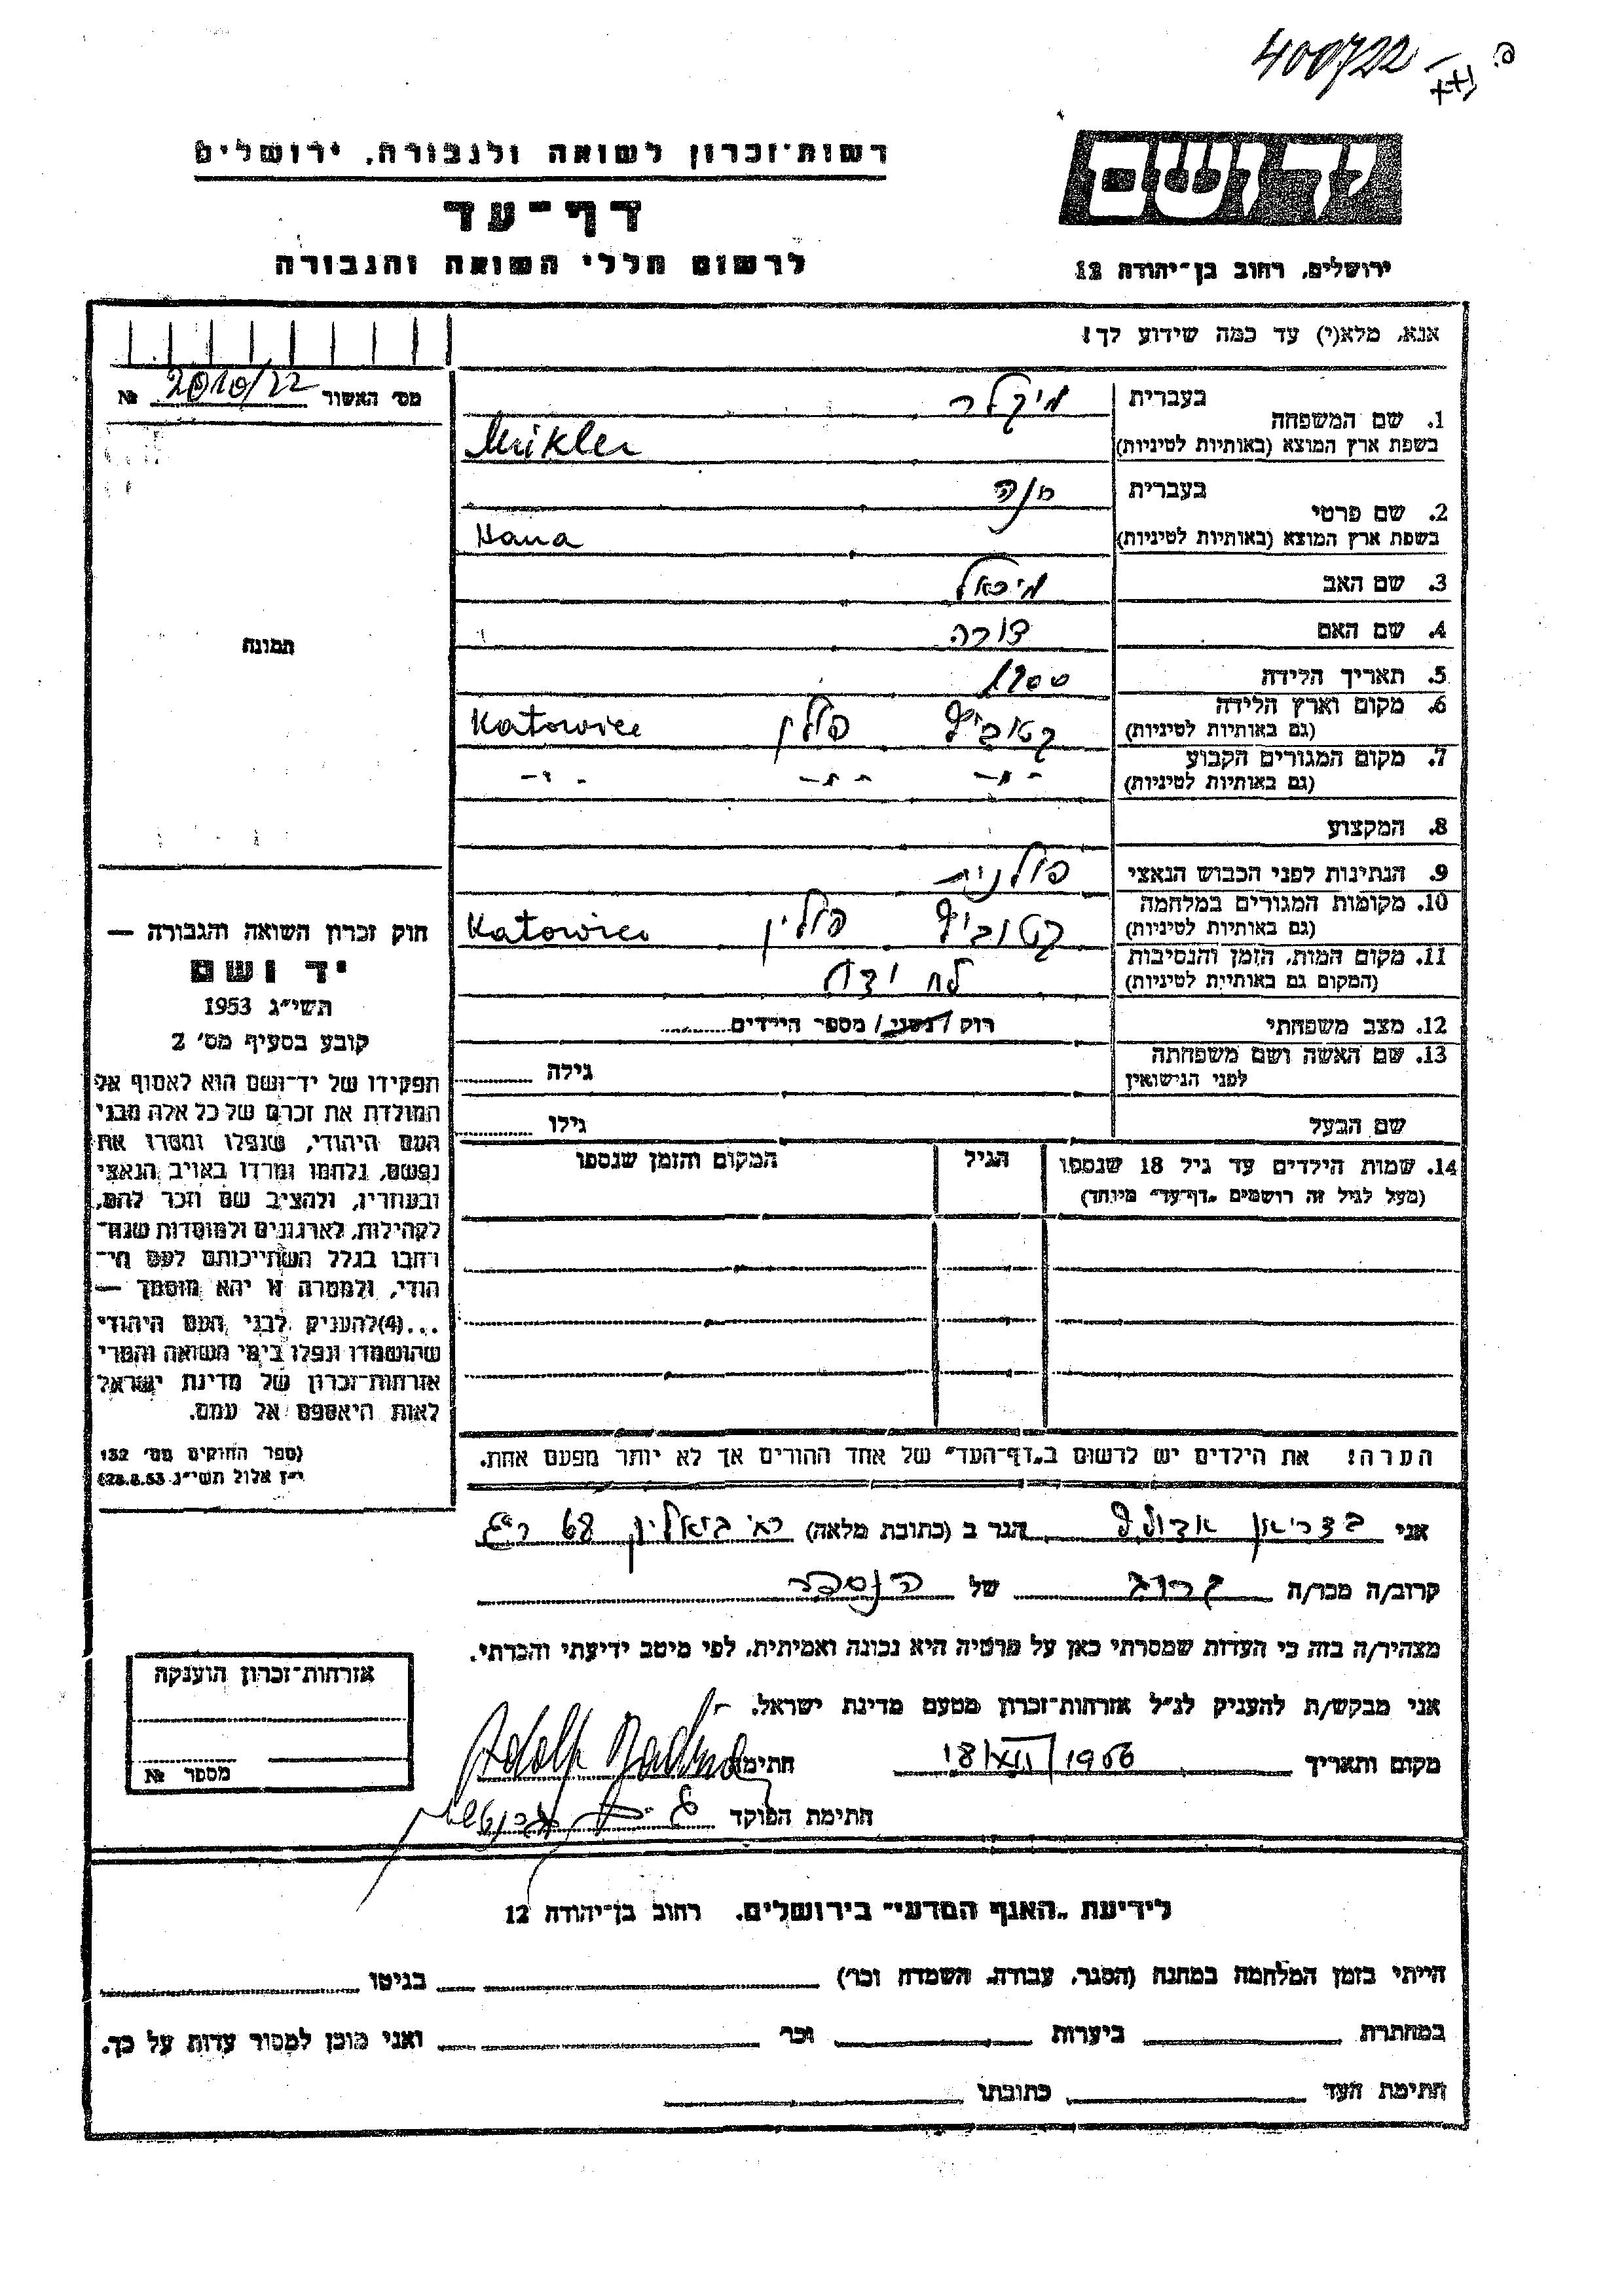 400722
רשות־זכרון לשואה ולגבורה, ירושלים
דף־עד
לרשום חללי השואה והגבורה
יד ושם
ירושלים, רחוב בן־יהודה 12
אנא, מלא(י) עד כמה שידוע לך!
מס׳ האשור 2010/22 №
תמונה
1. שם המשפחה
בעברית מיקלר
בשפת ארץ המוצא (באותיות לטיניות) Mikler
2. שם פרטי
בעברית חנה
בשפת ארץ המוצא (באותיות לטיניות) Hana
3. שם האב מיכאל
4. שם האם דורה
5. תאריך הלידה 1900
6. מקום וארץ הלידה
(גם באותיות לטיניות) קטוביץ פולין Katowice
7. מקום המגורים הקבוע
(גם באותיות לטיניות) - " - - " - - " -
8. המקצוע
9. הנתינות לפני הכבוש הנאצי פולנית
10. מקומות המגורים במלחמה
(גם באותיות לטיניות) קטוביץ פולין Katowice
11. מקום המות, הזמן והנסיבות
(המקום גם באותיות לטיניות) לא ידוע
12. מצב משפחתי רווק / נשוי / מספר הילדים
13. שם האשה ושם משפחתה
לפני הנישואין גילה
שם הבעל גילו
14. שמות הילדים עד גיל 18 שנספו הגיל המקום והזמן שנספו
(מעל לגיל זה רושמים „דף־עד" מיוחד)
הערה! את הילדים יש לרשום ב„דף־העד" של אחד ההורים אך לא יותר מפעם אחת.
חוק זכרון השואה והגבורה —
יד ושם
תשי״ג 1953
קובע בסעיף מס׳ 2
תפקידו של יד־ושם הוא לאסוף אל
המולדת את זכרם של כל אלה מבני
העם היהודי, שנפלו ומסרו את
נפשם, נלחמו ומרדו באויב הנאצי
ובעוזריו, ולהציב שם וזכר להם,
לקהילות, לארגונים ולמוסדות שנח־
רבו בגלל השתייכותם לעם הי־
הודי, ולמטרה זו יהא מוסמך —
...(4)להעניק לבני העם היהודי
שהושמדו ונפלו בימי השואה והמרי
אזרחות־זכרון של מדינת ישראל
לאות היאספם אל עמם.
(ספר החוקים מס׳ 132
י״ז אלול תשי״ג 28.8.53)
אני אדולף הגר ב (כתובת מלאה) ביאליק 68 ר״ג
קרוב/ה מכר/ה קרוב של הנספה
מצהיר/ה בזה כי העדות שמסרתי כאן על פרטיה היא נכונה ואמיתית, לפי מיטב ידיעתי והכרתי.
אני מבקש/ת להעניק לנ״ל אזרחות־זכרון מטעם מדינת ישראל.
מקום ותאריך 18/XII/1956 חתימה Adolf
חתימת הפוקד
אזרחות־זכרון הוענקה
מספר №
לידיעת „האגף המדעי" בירושלים, רחוב בן־יהודה 12
הייתי בזמן המלחמה במחנה (הסגר, עבודה, השמדה וכו׳) בגיטו
במחתרת ביערות וכו׳ ואני מוכן למסור עדות על כך.
חתימת העד כתובתו